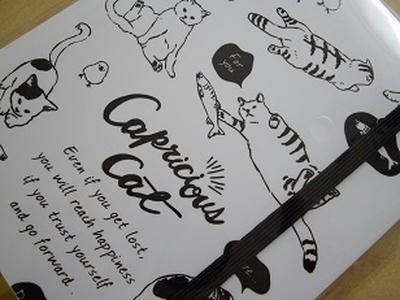 For
you
Capricious
Cat
Even if you get lost,
you will reach happiness
if you trust yourself
and go forward.